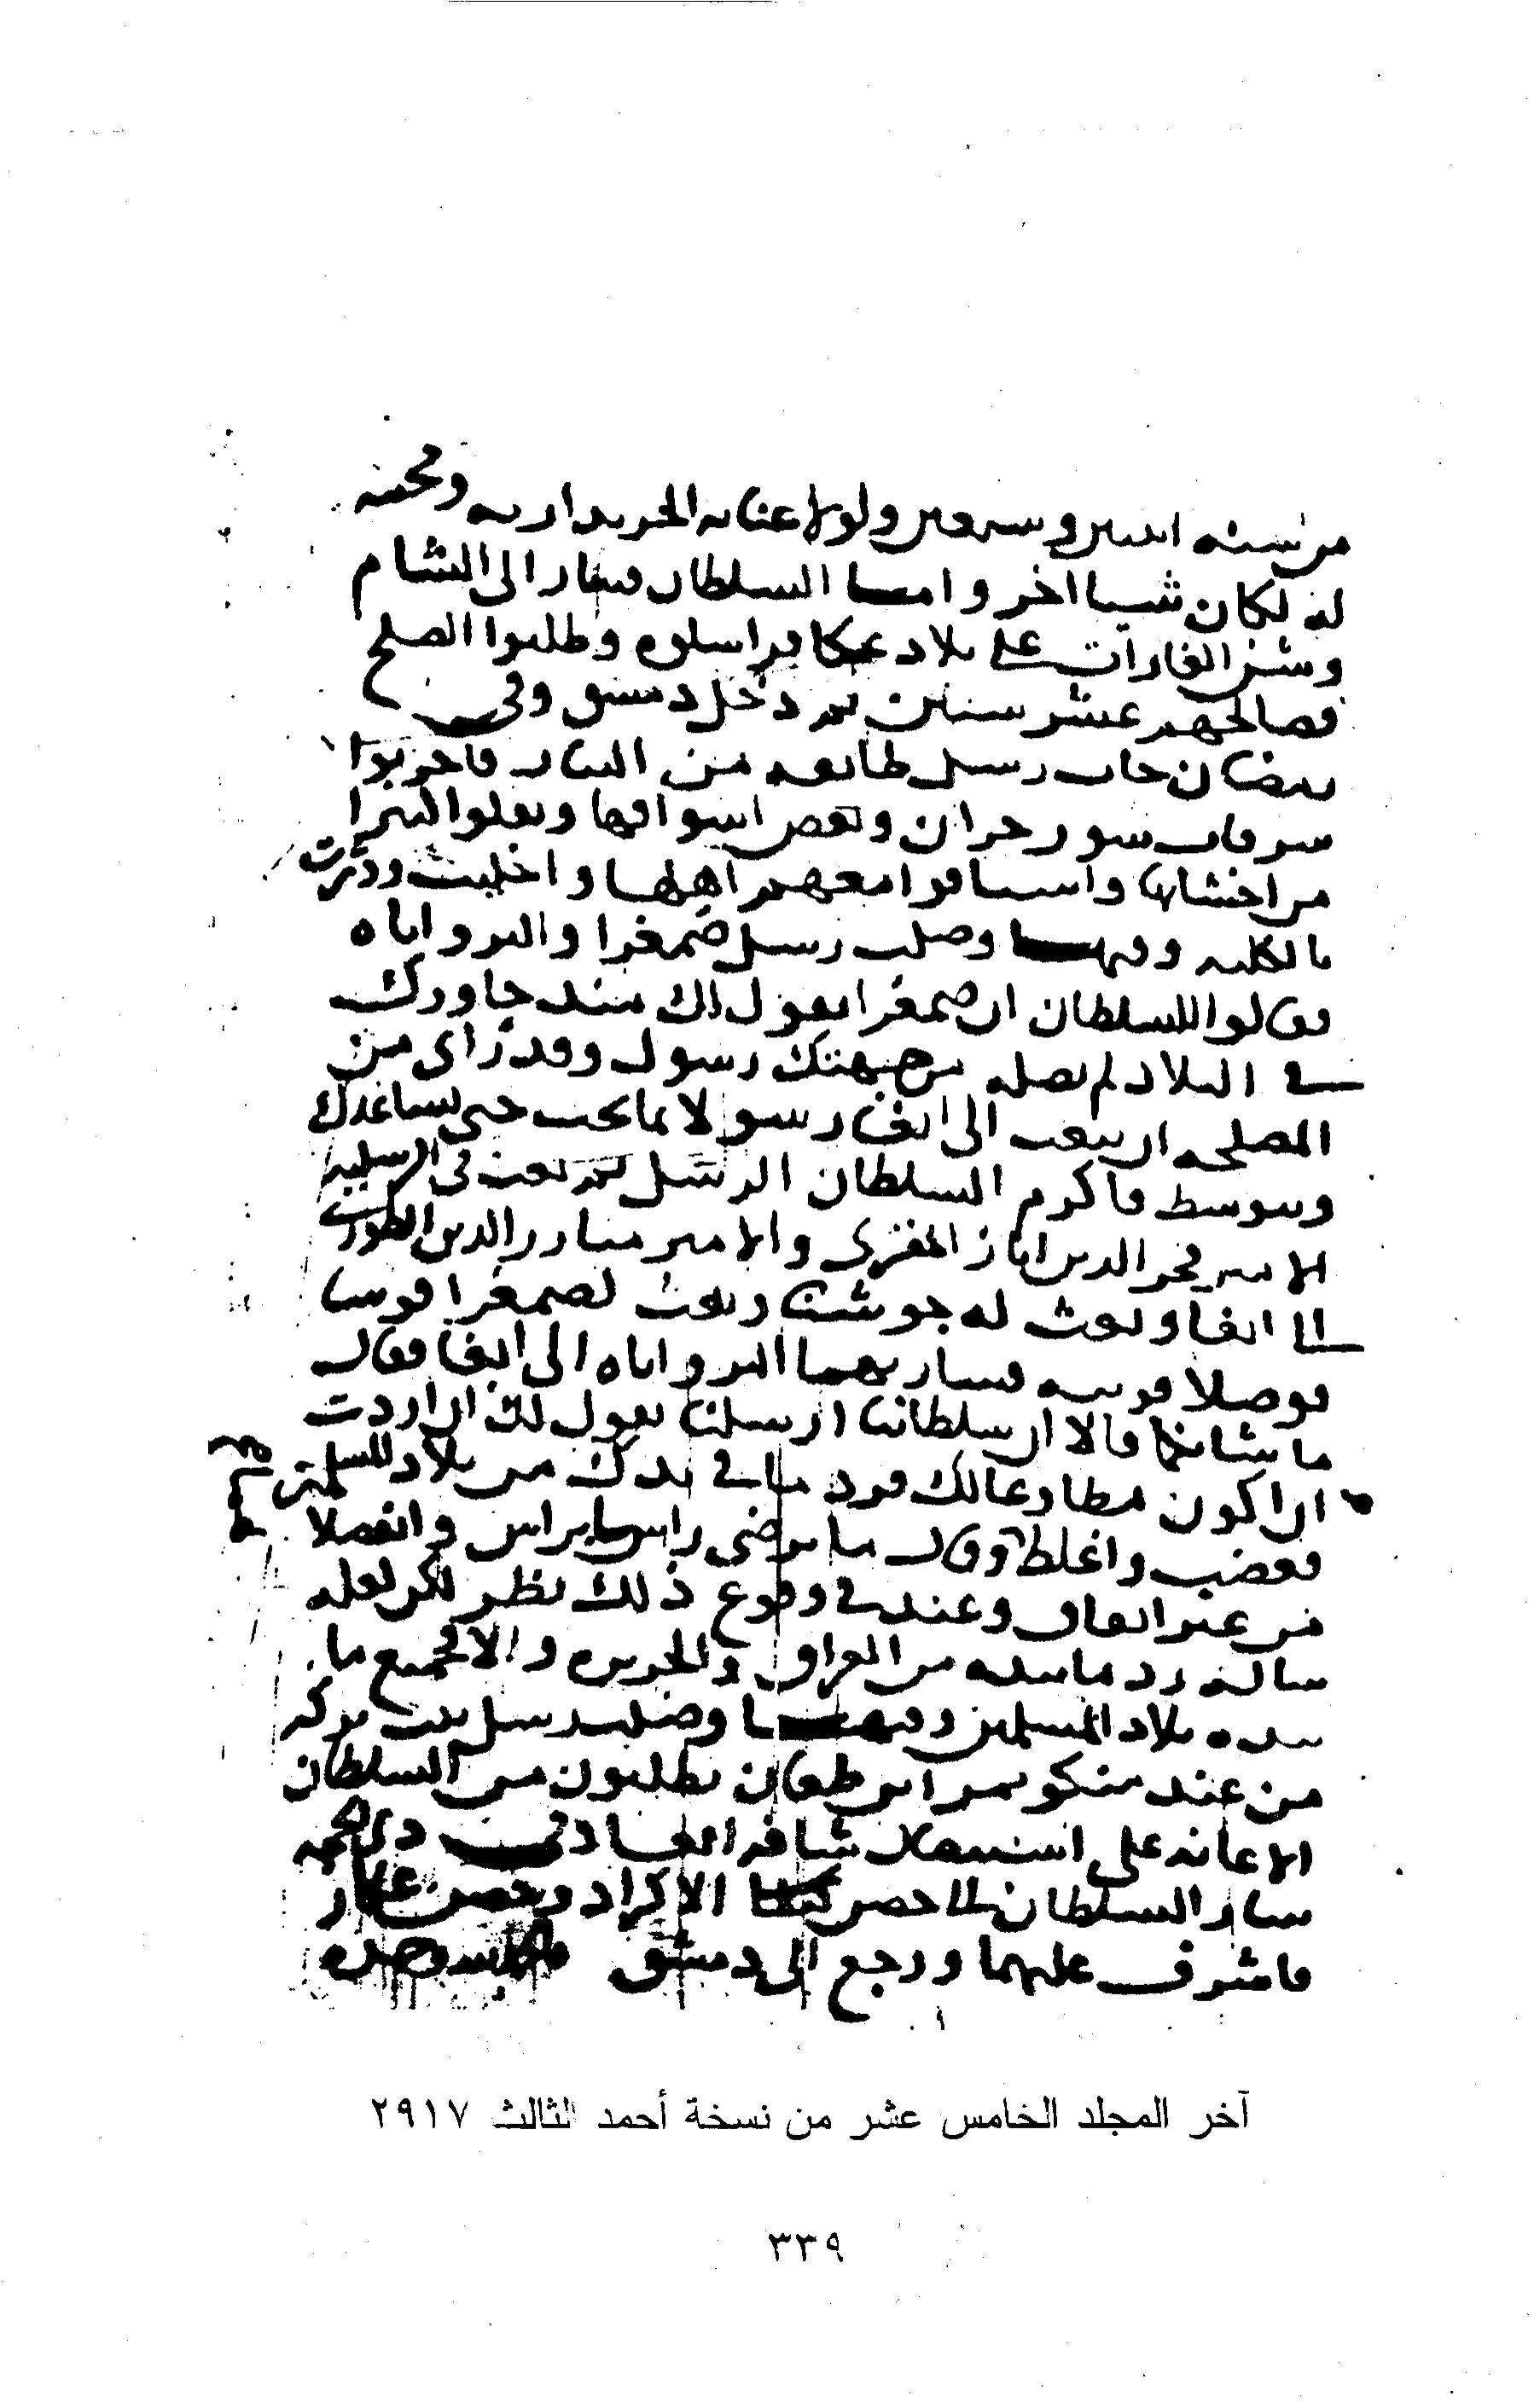 من سنه اثنين وسبعين ولولا عنايه الخربندار به ومحبته
له لكان شيا اخر واما السلطان فسار الى الشام
وشن الغارات على بلاد عكا فراسلوه وطلبوا الصلح
فصالحهم عشر سنين ثم دخل دمشق وفى
رمضان جات رسل طايفه من التتار فاخربوا
شرفات سور حران وبعض اسواقها ونقلوا كثيرا
من اخشابها واستاقوا معهم اهلها واخليت ودثرت
بالكليه وفيها وصلت رسل صمغرا والبرواناه
فقالوا للسلطان ان صمغرا يقول لك منذ جاورك
فى البلاد لم يصله من جهتك رسول وقد راى من
المصلحه ان تبعث الى ابغا رسولا بما تحب حتى يساعدك
ويتوسط فاكرم السلطان الرسل ثم بعث فى الرسليه
الامير فخر الدين اياز المقرى والامير مبارز الدين الطورى
الى ابغا وبعث له جوشنا وبعث لصمغرا قوسا
فوصلا قونيه فسار بهما البرواناه الى ابغا فقال
ما شانكما فقالا ان سلطاننا ارسلنا يقول لك ان اردت
ان اكون مطاوعا لك فرد ما فى يدك من بلاد المسلمين
فغضب واغلظ وقال ما يرضى راسا براس وانفصلا
من غير اتفاق وعندى فى وقوع ذلك نظر لكن لعله
ساله رد ما بيده من العراق والجزيره والا فجميع ما
بيده بلاد المسلمين وفيها وصلت رسل بيت بركه
من عند منكوتمر ابن طغان يطلبون من السلطان
الاعانه على استيصال شافه ابغا وفى ذى الحجه
سار السلطان الى حصن الاكراد وحصن عكار
فاشرف عليهما ورجع الى دمشق
آخر المجلد الخامس عشر من نسخة أحمد الثالث ٢٩١٧
٣٣٩